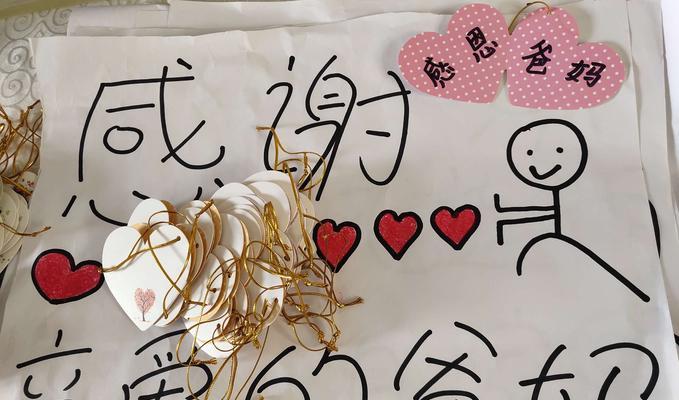 感恩爸妈
感谢
亲爱的爸妈